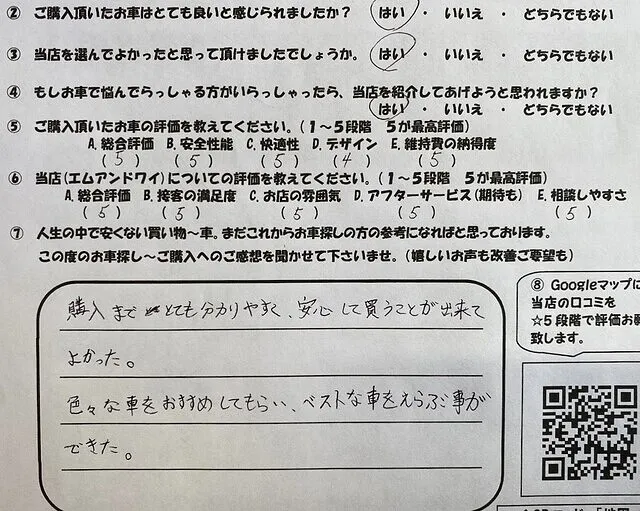 ② ご購入頂いたお車はとても良いと感じられましたか? はい ・ いいえ ・ どちらでもない
③ 当店を選んでよかったと思って頂けましたでしょうか。 はい ・ いいえ ・ どちらでもない
④ もしお車で悩んでらっしゃる方がいらっしゃったら、当店を紹介してあげようと思われますか?
はい ・ いいえ ・ どちらでもない
⑤ ご購入頂いたお車の評価を教えてください。(1~5段階 5が最高評価)
A. 総合評価 B. 安全性能 C. 快適性 D. デザイン E. 維持費の納得度
(5) (5) (5) (4) (5)
⑥ 当店(エムアンドワイ)についての評価を教えてください。(1~5段階 5が最高評価)
A. 総合評価 B. 接客の満足度 C. お店の雰囲気 D. アフターサービス(期待も) E. 相談しやすさ
(5) (5) (5) (5) (5)
⑦ 人生の中で安くない買い物~車。まだこれからお車探しの方の参考になればと思っております。
この度のお車探し~ご購入へのご感想を聞かせて下さいませ。(嬉しいお声も改善ご要望も)
購入まで とても分かりやすく、安心して買うことが出来て
よかった。
色々な車をおすすめしてもらい、ベストな車をえらぶ事が
できた。
⑧ Googleマップに
当店の口コミを
☆5段階で評価お願
致します。